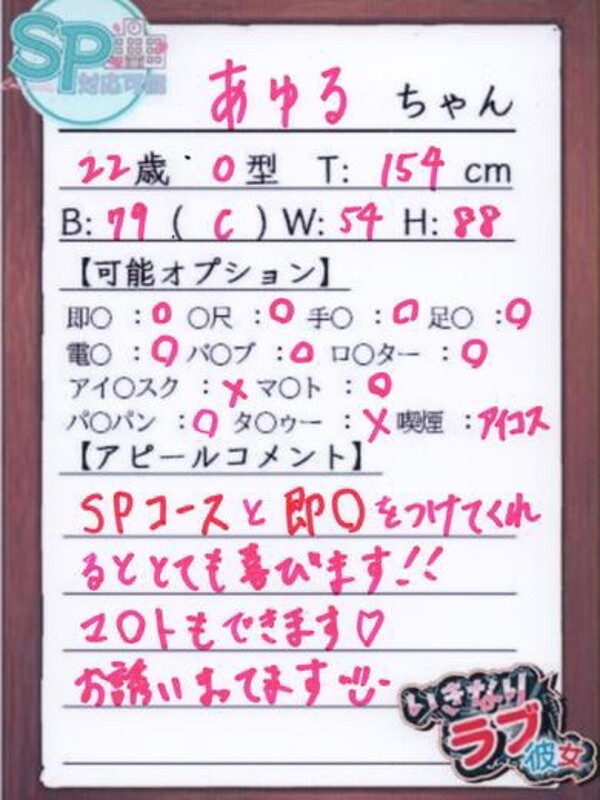 SP
対応可能
あゆる ちゃん
22歳 O型 T: 154 cm
B: 79 ( C ) W: 54 H: 88
【可能オプション】
即〇 :〇 〇尺 :〇 手〇 :〇 足〇 :〇
電〇 :〇 パ〇ブ :〇 ロ〇ター :〇
アイ〇スク :× マ〇ト :〇
パ〇パン :〇 タ〇ゥー :× 喫煙 :アイコス
【アピールコメント】
SPコースと即〇をつけてくれ
るととても喜びます!!
マ〇トもできます♡
お誘いまってます
いきなり
ラブ彼女